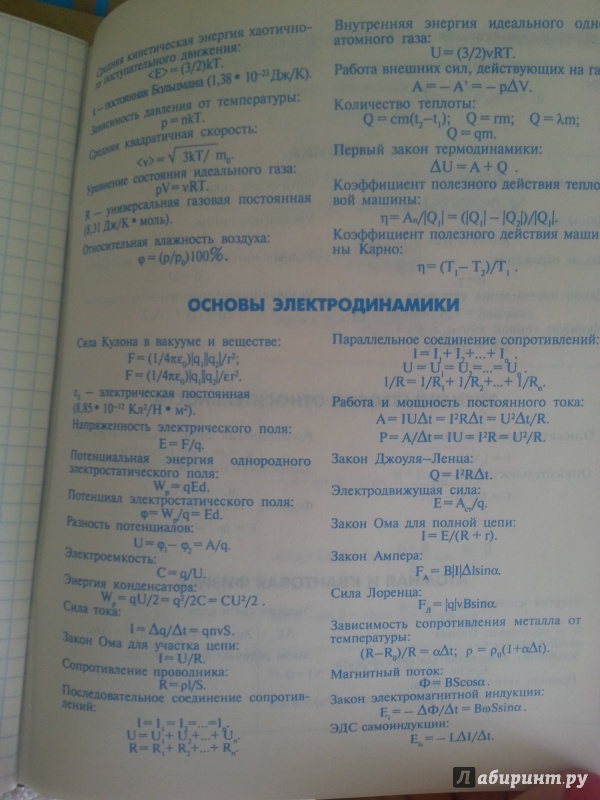 Средняя кинетическая энергия хаотично-
го поступательного движения:
<E> = (3/2)kT.
k – постоянная Больцмана (1,38 • 10⁻²³ Дж/К).
Зависимость давления от температуры:
p = nkT.
Средняя квадратичная скорость:
<v> = √3kT/ m₀.
Уравнение состояния идеального газа:
pV = νRT.
R – универсальная газовая постоянная
(8,31 Дж/К • моль).
Относительная влажность воздуха:
φ = (p/p₀)100%.
Внутренняя энергия идеального одно
атомного газа:
U = (3/2)νRT.
Работа внешних сил, действующих на га
A = – A' = – pΔV.
Количество теплоты:
Q = cm(t₂–t₁); Q = rm; Q = λm;
Q = qm.
Первый закон термодинамики:
ΔU = A + Q .
Коэффициент полезного действия тепло
вой машины:
η = Aₙ/|Q₁| = (|Q₁| – |Q₂|)/|Q₁|.
Коэффициент полезного действия маши
ны Карно:
η = (T₁ – T₂)/T₁ .
ОСНОВЫ ЭЛЕКТРОДИНАМИКИ
Сила Кулона в вакууме и веществе:
F = (1/4πε₀)|q₁||q₂|/r²;
F = (1/4πε₀)|q₁||q₂|/εr².
ε₀ – электрическая постоянная
(8,85• 10⁻¹² Кл²/Н • м²).
Напряженность электрического поля:
E = F/q.
Потенциальная энергия однородного
электростатического поля:
Wₚ = qEd.
Потенциал электростатического поля:
φ = Wₚ/q = Ed.
Разность потенциалов:
U = φ₁ – φ₂ = A/q.
Электроемкость:
C = q/U.
Энергия конденсатора:
Wₚ = qU/2 = q²/2C = CU²/2 .
Сила тока:
I = Δq/Δt = qnvS.
Закон Ома для участка цепи:
I = U/R.
Сопротивление проводника:
R = ρl/S.
Последовательное соединение сопротив-
лений:
I = I₁ = I₂ =...= Iₙ.
U = U₁ + U₂ +...+ Uₙ.
R = R₁ + R₂ +...+ Rₙ.
Параллельное соединение сопротивлений:
I = I₁ + I₂ +...+ Iₙ .
U = U₁ = U₂ =...= Uₙ.
1/R = 1/R₁ + 1/R₂ +...+ 1/Rₙ.
Работа и мощность постоянного тока:
A = IUΔt = I²RΔt = U²Δt/R.
P = A/Δt = IU = I²R = U²/R.
Закон Джоуля–Ленца:
Q = I²RΔt.
Электродвижущая сила:
E = Aст/q.
Закон Ома для полной цепи:
I = E/(R + r).
Закон Ампера:
Fₐ = B|I|Δlsinα.
Сила Лоренца:
Fл = |q|vBsinα.
Зависимость сопротивления металла от
температуры:
(R–R₀)/R = αΔt; ρ = ρ₀(1+αΔt).
Магнитный поток:
Ф = BScosα.
Закон электромагнитной индукции:
Eᵢ = – ΔФ/Δt = BωSsinα.
ЭДС самоиндукции:
Eᵢₛ = – LΔI/Δt.
Лабиринт.ру